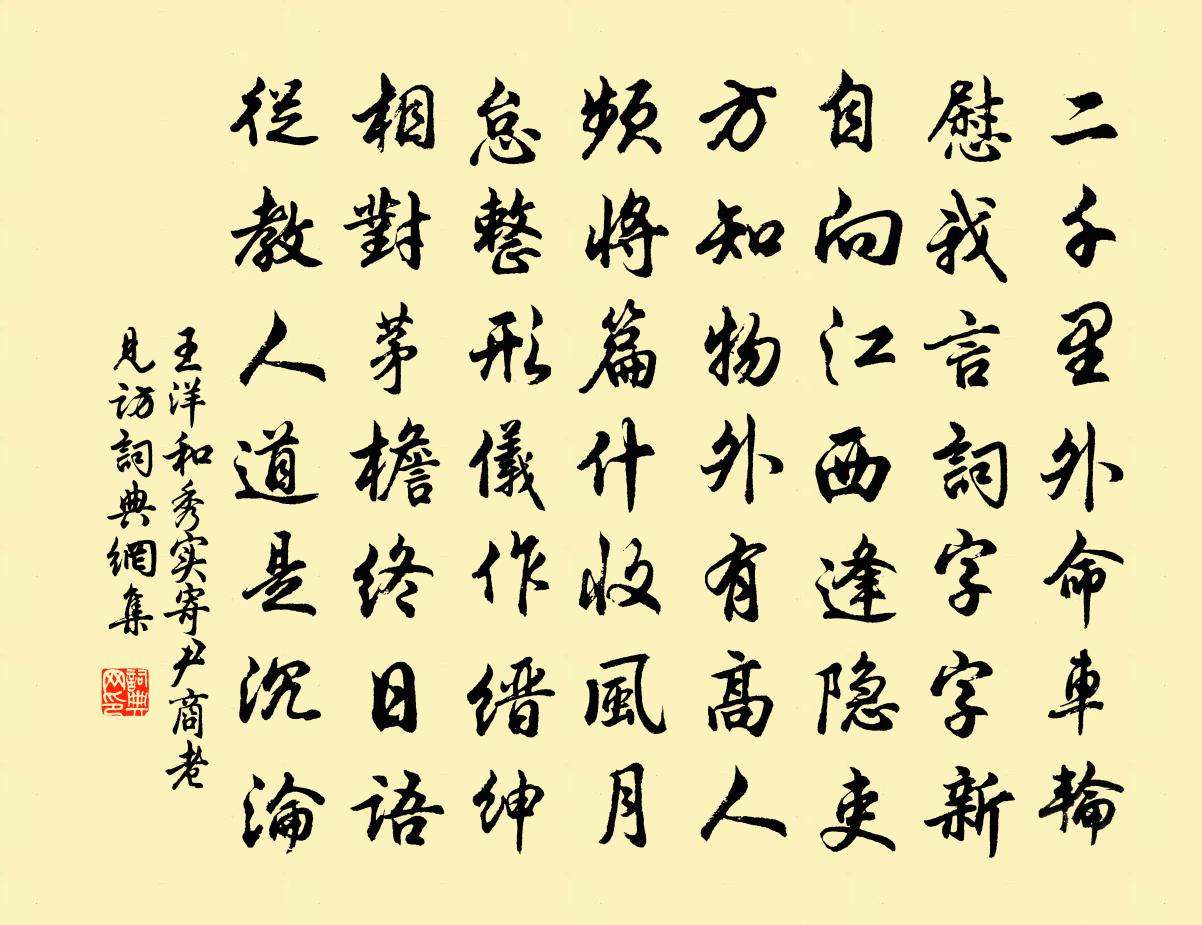 二千里外命車輪
慰我言詞字字新
自向江西逢隐吏
方知物外有高人
頻將篇什收風月
怠整形儀作缙紳
相對茅檐終日語
從教人道是沉淪
王洋和秀实寄尹商老
見访詞典網集
詞典网印